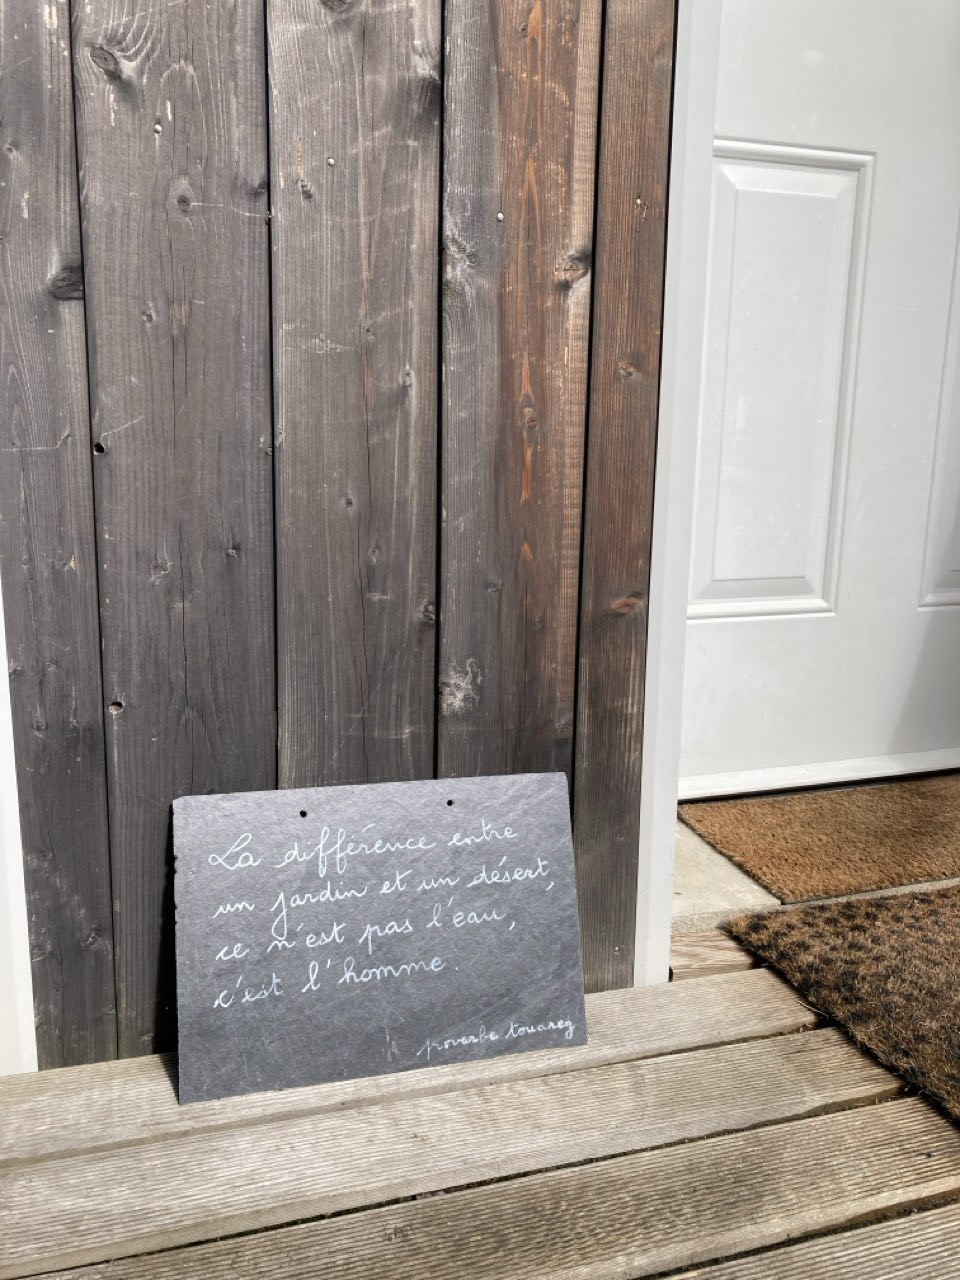 La différence entre
un jardin et un désert,
ce n'est pas l'eau,
c'est l'homme.
proverbe touareg